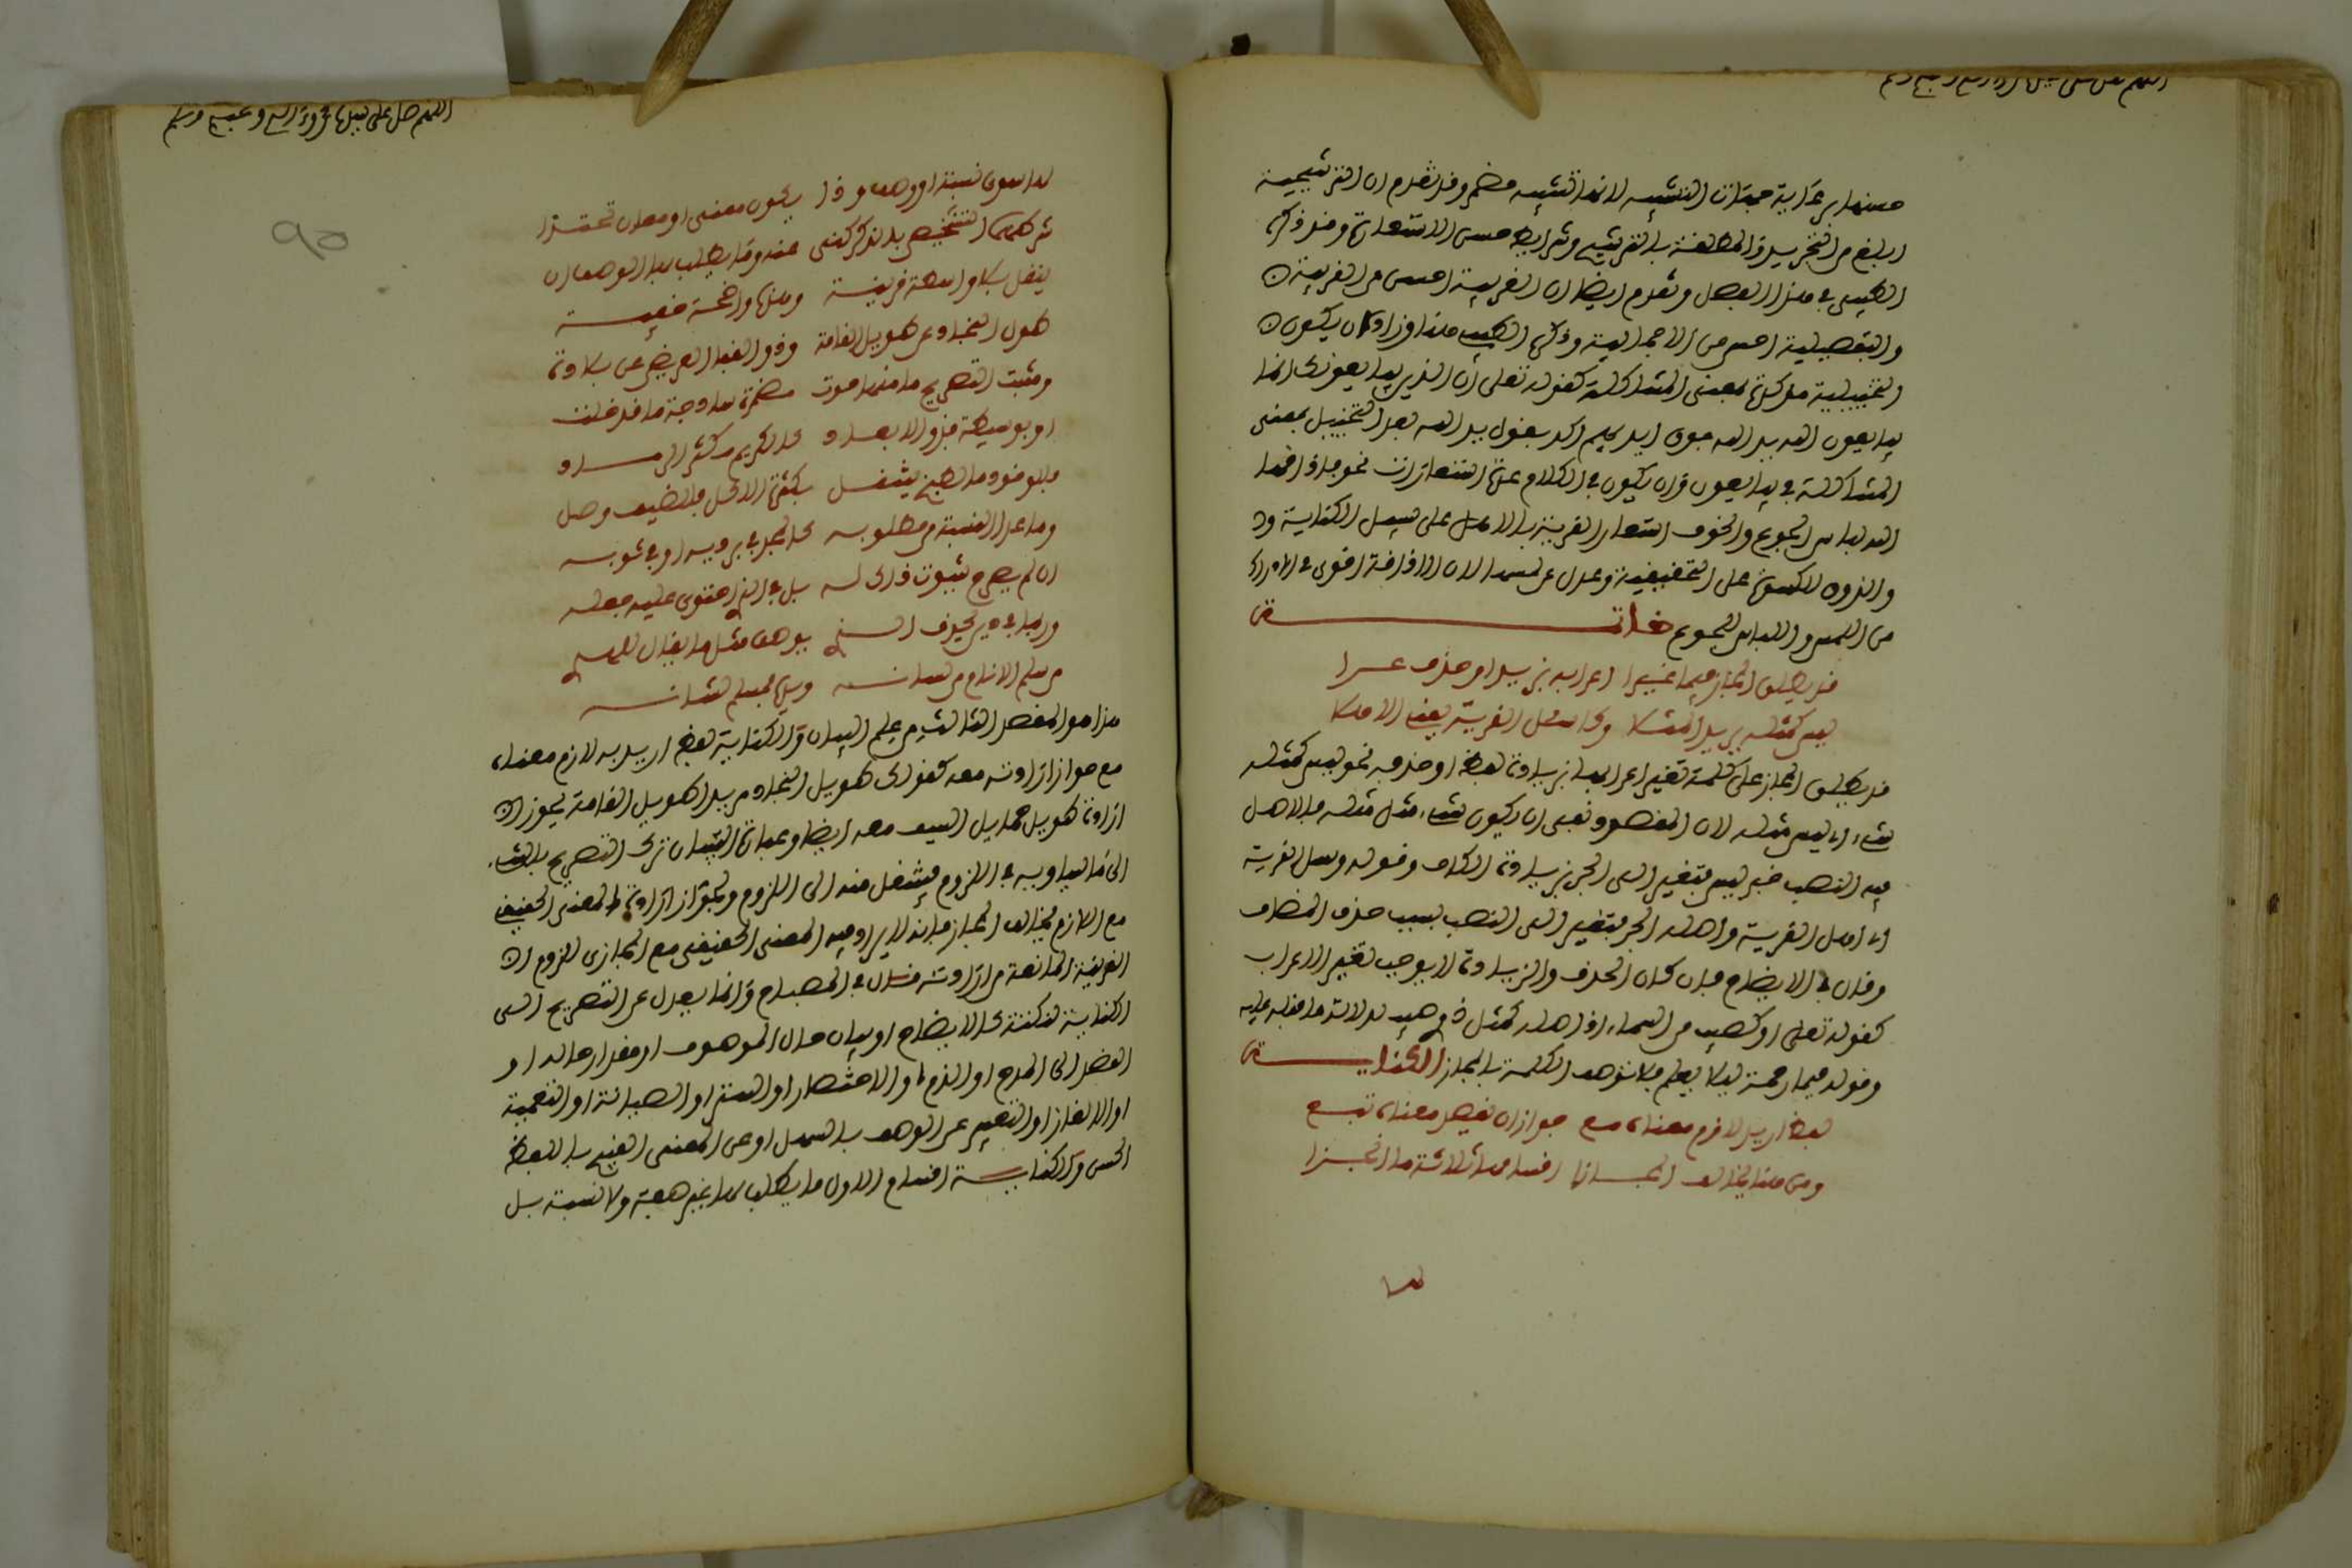 حسنها برعاية جهات التشبيه لانها تشبيه مضمر وقد تقدم ان الترشيحية
ابلغ من التجريد والمطلقة بالترشيح وشرايط حسن الاستعارة وقد ذكر
الطيبى في هذا الفصل وتقدم ايضا ان الغريبة احسن من القريبة
والتفصيلية احسن من الاجمالية وذكر الطيبى هنا ان يكون
التخييلية مشاكلة كقوله تعلى ان الذين يبايعونك انما
يبايعون الله يد الله فوق ايديهم اكد بقوله يد الله بعد التخييل بمعنى
المشاكلة في يبايعون وان يكون في الكلام عدة استعارات نحو فاذاقها
الله لباس الجوع والخوف استعار القرية للاهل على سبيل الكناية
والذوق للكسوة على التحقيقية وعدل عن لان الاذاقة اقوى في الادراك
من اللمس واللباس للجوع خاتمة
قد يطلق المجاز فيما غيرا اعرابه بزيد او حذف عرا
ليس كمثله يريد المثلا وكاسئل القرية يعنى الاهلا
قد يطلق المجاز على كلمة تغير اعرابها بزيادة لفظ او حذفه نحو ليس كمثله
شىء اى ليس مثله لان المقصود نفى ان يكون شىء مثل مثله فالاصل
فيه النصب خبر ليس فتغير الى الجر بزيادة الكاف وقوله وسل القرية
اى اهل القرية واصله الجر فتغير الى النصب بسبب حذف المضاف
وقال في الايضاح فان كان الحذف والزيادة لا يوجب تغير الاعراب
كقوله تعلى او كصيب من السماء اذ اصله كمثل ذوى صيب لدلالة ما قبله عليه
وقوله فبما رحمة ليلا يعلم فلا توصف الكلمة بالمجاز الكناية
لفظ اريد لازم معناه مع جواز ان يقصد معناه تبع
ومن هنا يخالف المجازا اقسامها ثلاثة ما انحزا
لما
اللهم صل على نبينا محمد وءاله وصحبه وسلم
95
لها سوى نسبة او وصف وذا يكون معنى او معان تحتذا
شرطهما التخصيص بالذكر كنى عنه وما يطلب بها الوصف ان
ينقل بلا واسطة قريبة ومنها واضحة خفية
طول النجاد عن طويل القامة وذو القفا العريض عن بلادة
ومثبت التصريح ما منها حوت مضمرة ساذجة ما قد خلت
او بوسيطة فذو الابعاد كالكريم كثر الرماد
فللوقود فالطبخ ينتقل بكثرة الاكل فالضيف وصل
وما عدا النسبة من مطلوبه كالمجد في برديه او في ثوبه
ان لم يصرح بثبوت ذاك له بل في الذى احتوى عليه جعله
وربما في دين يحذف الذى يوصف مثل ما يقال للبذى
من سلم الانام من لسانه وليس مسلم لشانه
هذا هو المقصد الثالث من علم البيان والكناية لفظ اريد به لازم معناه
مع جواز ارادته معه كقولك طويل النجاد مريدا طويل القامة يجوز ان
ارادة طويل حمايل السيف معه ايضا وعبارة التبيان ترك التصريح بالشىء
الى مايساويه في اللزوم فينتقل منه الى الملزوم وبجواز ارادة المعنى الحقيقى
مع اللازم يخالف المجاز فانه لايراد فيه المعنى الحقيقى مع المجازى للزوم ان
القرينة المانعة من ارادته قال في المصباح وانما يعدل عن التصريح الى
الكناية لنكتة كالايضاح او بيان حال الموصوف او مقدار حاله او
القصد الى المدح او الذم او الاختصار او الستر او الصيانة او التعمية
او الالغاز او التعبير عن الوصف بالسهل او عن المعنى القبيح باللفظ
الحسن والكناية اقسام الاول ما يطلب بها غير صفة ولا نسبة بل